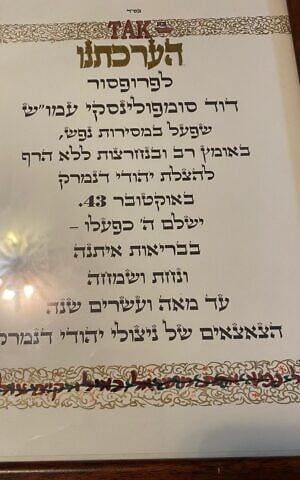 בס״ד
TAK
הערכתנו
לפרופסור
דוד סומפולינסקי עמו״ש
שפעל במסירות נפש,
באומץ רב ובנחרצות ללא הרף
להצלת יהודי דנמרק
באוקטובר 43.
ישלם ה׳ כפעלו –
בבריאות איתנה
ונחת ושמחה
עד מאה ועשרים שנה
הצאצאים של ניצולי יהודי דנמרק